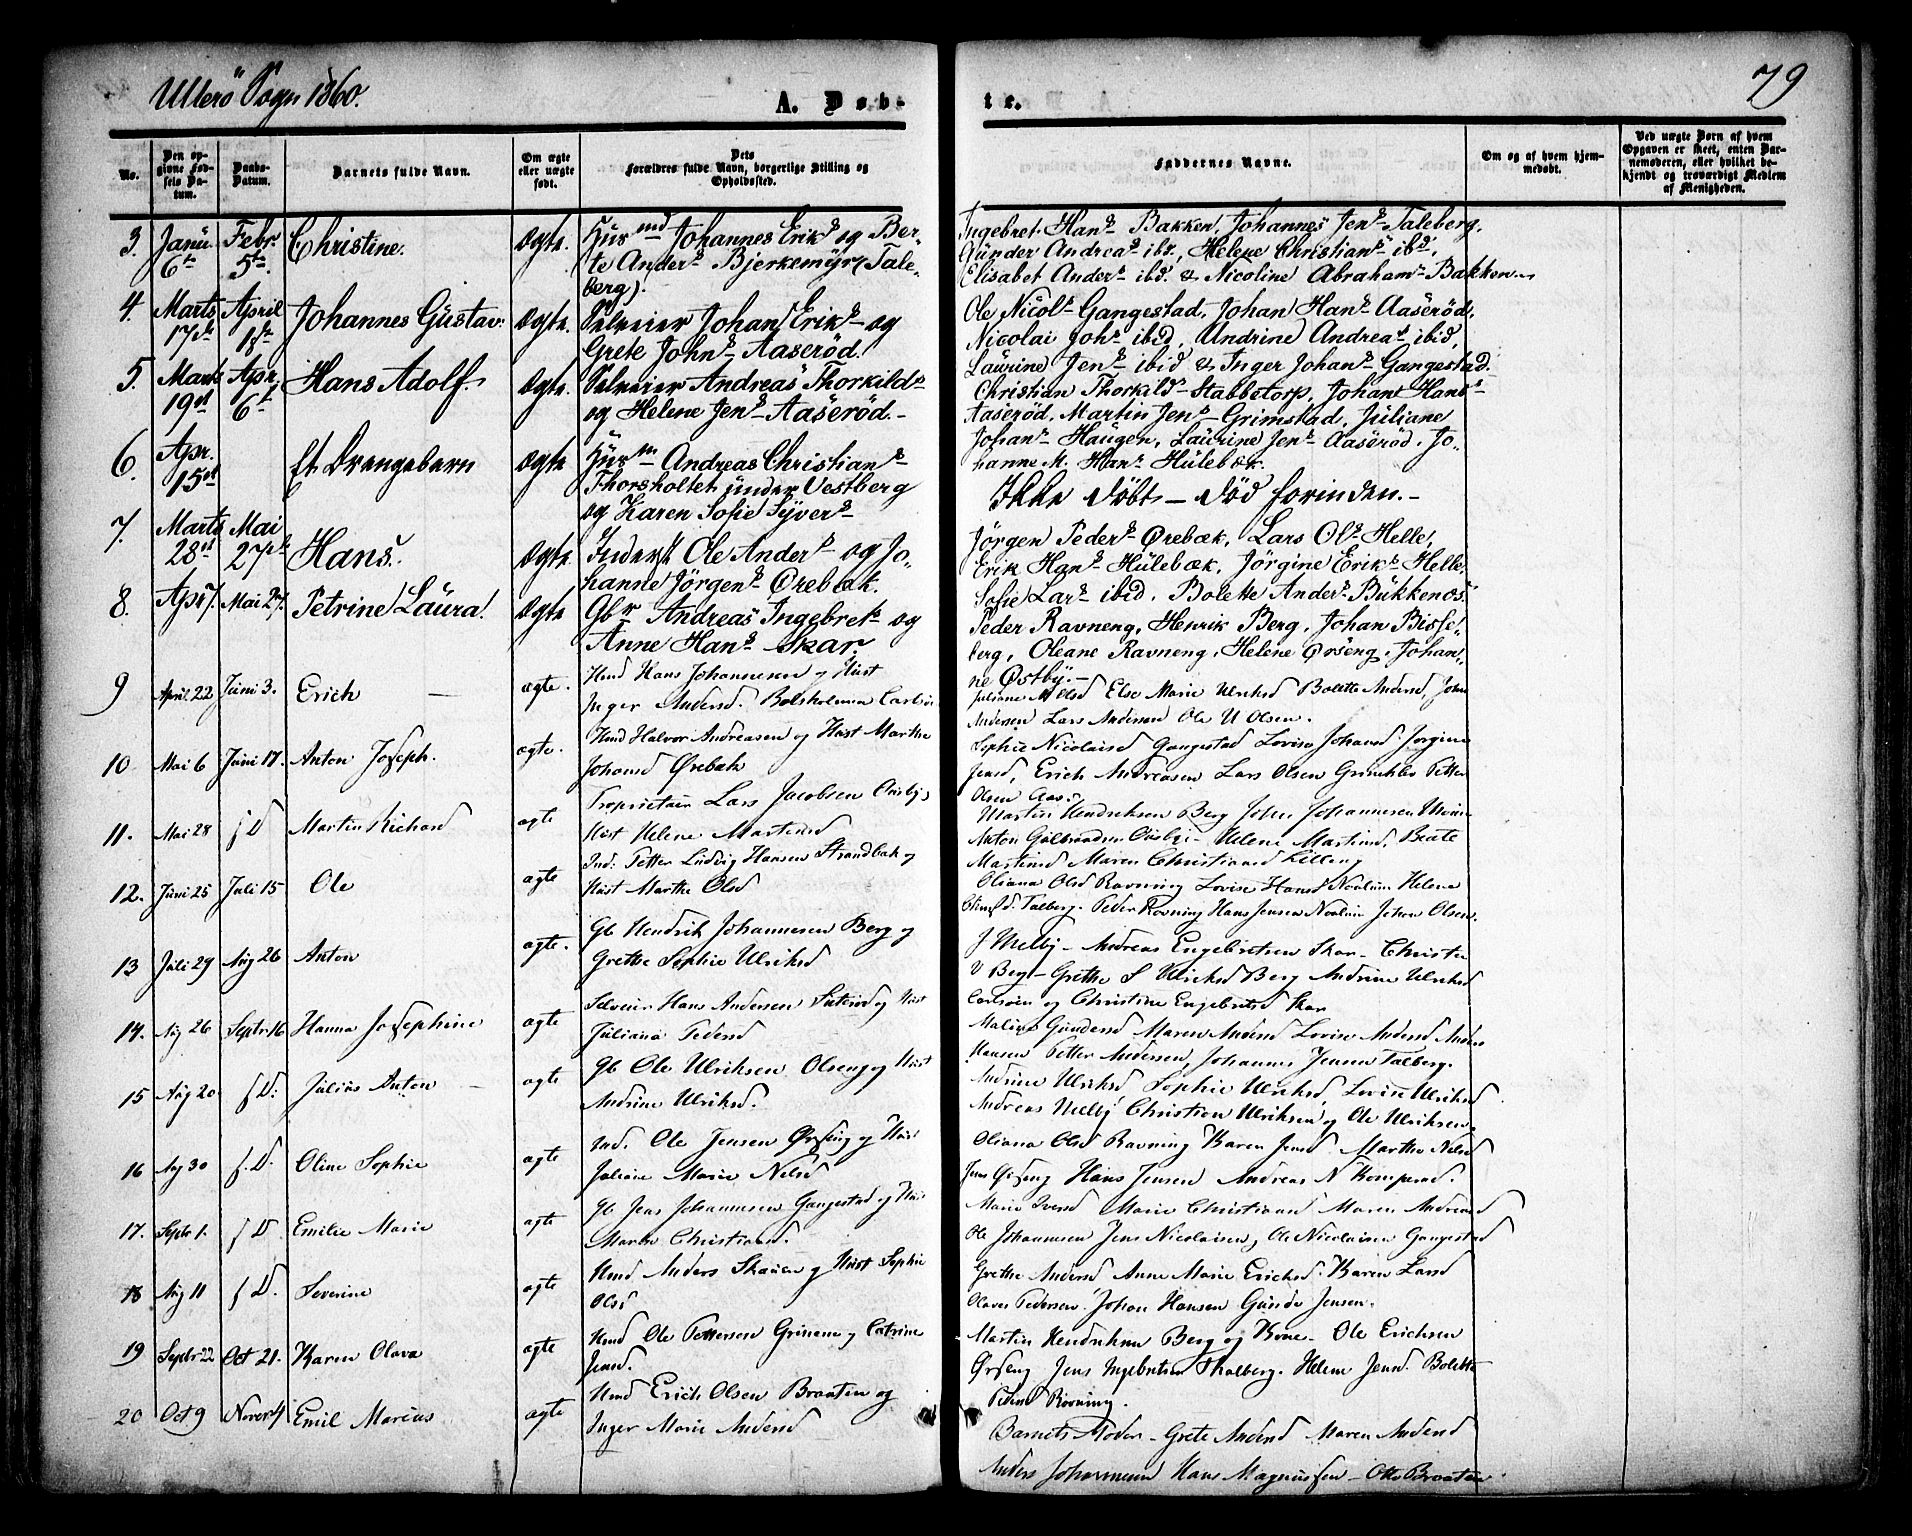 Ullerö Sogn 1860.
A. Døb-
te.
79
No.
Den opgivne Fødsels Datum.
Daabs-Datum.
Barnets fulde Navn.
Om ægte eller uægte født.
Dets Forældres fulde Navn, borgerlige Stilling og Opholdssted.
Faddernes Navne.
Om og af hvem hjemmedøbt.
Ved uægte Børn af hvem Opgaven er skeet, enten Barnemoderen, eller hvilket bekjendt og troværdigt Medlem af Menigheden.
3. Janu. 6te Febr. 5te Christine. Ægte. Husmd Johannes Eriks og Ber-
te Anders Bjerkemyr (Tale-
berg).
Ingebret Hans Bakken, Johannes Jens Taleberg,
Günder Andreas ibd., Helene Christians ibd,
Elisabet Anders ibd. & Nicoline Abrahams Bakken.
4. Marts 17de April 18de Johannes Gustav. Ægte. Selveier Johan Eriks og
Grete Johns Aaseröd.
Ole Nicols Gangestad, Johan Hans Aaseröd,
Nicolai Johs ibid, Andrine Andreas ibid,
Laurine Jens ibid & Inger Johans Gangestad.
5. Marts 19de Apr. 6te Hans Adolf. Ægte. Selveier Andreas Thorkilds
og Helene Jens Aaseröd.
Christian Thorkilds Stabbetorp, Johan Hans
Aaseröd, Martin Jens Grimstad, Juliane
Johans Haugen, Laurine Jens Aaseröd, Jo-
hanne M. Hans Hulebæk.
6. Apr. 15de Et Drengebarn Ægte Husm Andreas Christians
Thorsholtet under Vestberg
og Karen Sofie Syvers
Ikke döbt - död forinden. -
7. Marts 28de Mai 27de Hans. Ægte. Inderst Ole Anders og Jo-
hanne Jörgens Ørebæk.
Jörgen Peders Ørebæk, Lars Ols Helle,
Erik Hans Hulebæk, Jörgine Eriks Helle,
Sofie Lars ibid, Bolette Anders Bukkenos.
8. Apr. 7. Mai 27. Petrine Laura. Ægte Gbr Andreas Ingebrets og
Anne Hans Skar.
Peder Ravneng, Henrik Berg, Johan Bisse-
berg, Oleane Ravneng, Helene Ørseng, Johan-
ne Østby. -
9 April 22 Juni 3. Erich ægte. Hmd Hans Johannesen og Hust
Inger Andersd. Bolsholmen
Juliane Olsd Else Marie Ulriksd Bolette Andersd, John
Andersen Lars Andersen Ole U Olsen.
10 Mai 6 Juni 17. Anton Joseph. ægte. Hmd Halvor Andreasen og Hust Marthe
Johansd Ørebæk
Sophie Nicolaisd Gangestad Lovise Johansd Jorgine
Jensd, Erich Andreasen Lars Olsen Petter
Olsen Aas
11. Mai 28 f D Martin Richard ægte Proprietair Lars Jacobsen Ousby,
Hust Helene Martinsd
Martin Hendriksen Berg John Johannesen
Anton Gulbrandsen Ousby - Helene Martinsd, Beate
Martinsd Maren Christiansd
12. Juni 25 Juli 15 Ole ægte Ind. Petter Ludvig Hansen Strandbæk og
Hust Marthe Olsd
Oliana Olsd Ravning Lovise Hansd Helene
Talberg. Peder Ravning Hans Jensen Johan Olsen.
13 Juli 29 Aug 26 Anton ægte. Gb Hendrik Johannesen Berg og
Grethe Sophie Ulriksd
J Melby - Andreas Engebretsen Skar - Christen
U Berg - Grethe S Ulriksd Berg Andrine Ulriksd
og Christine Engebretsd Skar
14. Aug 26 Septr 16 Hanna Josephine ægte Selveier Hans Andersen og Hust
Juliana Pedersd
Gundersd Maren Andersd Lovise Andersd Anders
Hansen Petter Andersen, Johannes Jensen Talberg.
15 Aug 20 f D. Julius Anton ægte Gb Ole Ulriksen Olseng og Hust
Andrine Ulriksd.
Andrine Ulriksd Sophie Ulriksd, Lovise Ulriksd
Andreas Melby Christian Ulriksen og Ole Ulriksen
16 Aug 30 f. D. Oline Sophie ægte Ind. Ole Jensen Ørseng og Hust
Juliane Marie Nilsd
Oliana Olsd Ravning Karen Jensd. Marthe Nilsd
Jens Ørseng Hans Jensen Andreas N
17. Septr 1. f D Emilie Marie ægte Gb Jens Johannesen Gangestad og Hust
Maren Christiansd.
Maria Iversd Marie Christiansd Maren Andreasd
Ole Johannesen Jens Nicolaisen, Ole Nicolaisen Gangestad
18 Aug 11 f D. Severine ægte Hmd Anders Skauen og Hust Sophie
Olsd
Grethe Andersd Anne Marie Erichsd. Karen Larsd
Olaves Pedersen. Johan Hansen Gunder Jensen.
19 Septr 22 Oct 21. Karen Olava ægte Hmd Ole Pettersen og Catrine
Jensd.
Martin Hendriksen Berg og Kone - Ole Erichsen
Ørseng Jens Ingebretsen Thalberg. Helene Jensd. Bolette
Pedersd Ravning.
20 Oct 9 Novr 4 Emil Marius ægte Hmd Erich Olsen Braaten og
Inger Marie Andersd
Barnets Moder - Grete Andersd Maren Andersd
Anders Johannesen Hans Magnussen - Otto Braaten